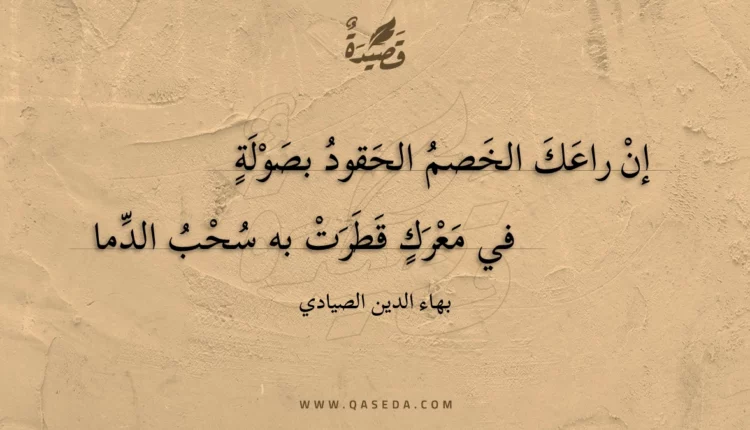 قَصِيدَةٌ
إنْ راعَكَ الخَصمُ الحَقودُ بصَوْلَةٍ
في مَعْرَكٍ قَطَرَتْ به سُحْبُ الدِّما
بهاء الدين الصيادي
WWW.QASEDA.COM